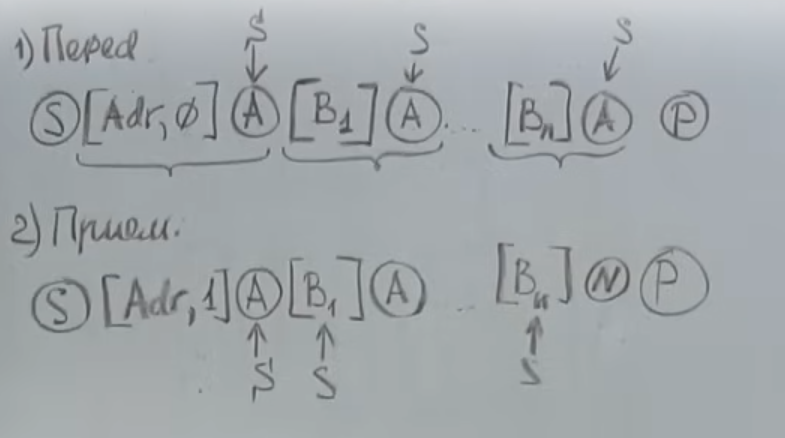 S S S
1) Перед
S [Adr, Ø] A [B1] A ... [Bn] A P
2) Прием.
S [Adr, 1] A [B1] A .. [Bn] N P
S S S